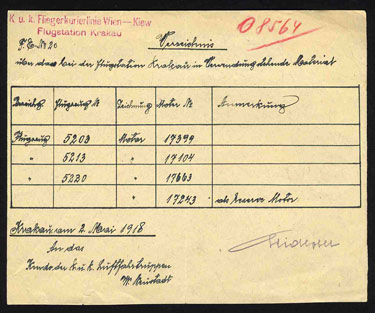 K. u. k. Fliegerkurierlinie Wien—Kiew
Flugstation Krakau
08564
F.E. № 20
Verzeichnis
über das bei der Flugstation Krakau in Verwendung stehende Material
Flugzeug № Motor № Anmerkung
Flugzeug 5203 Motor 17399
" 5213 " 17104
" 5220 " 17663
" 17243 als Reserve Motor
Krakau am 2. Mai 1918
An das
Kmdo. der k. u. k. Luftfahrtruppen
W. Neustadt